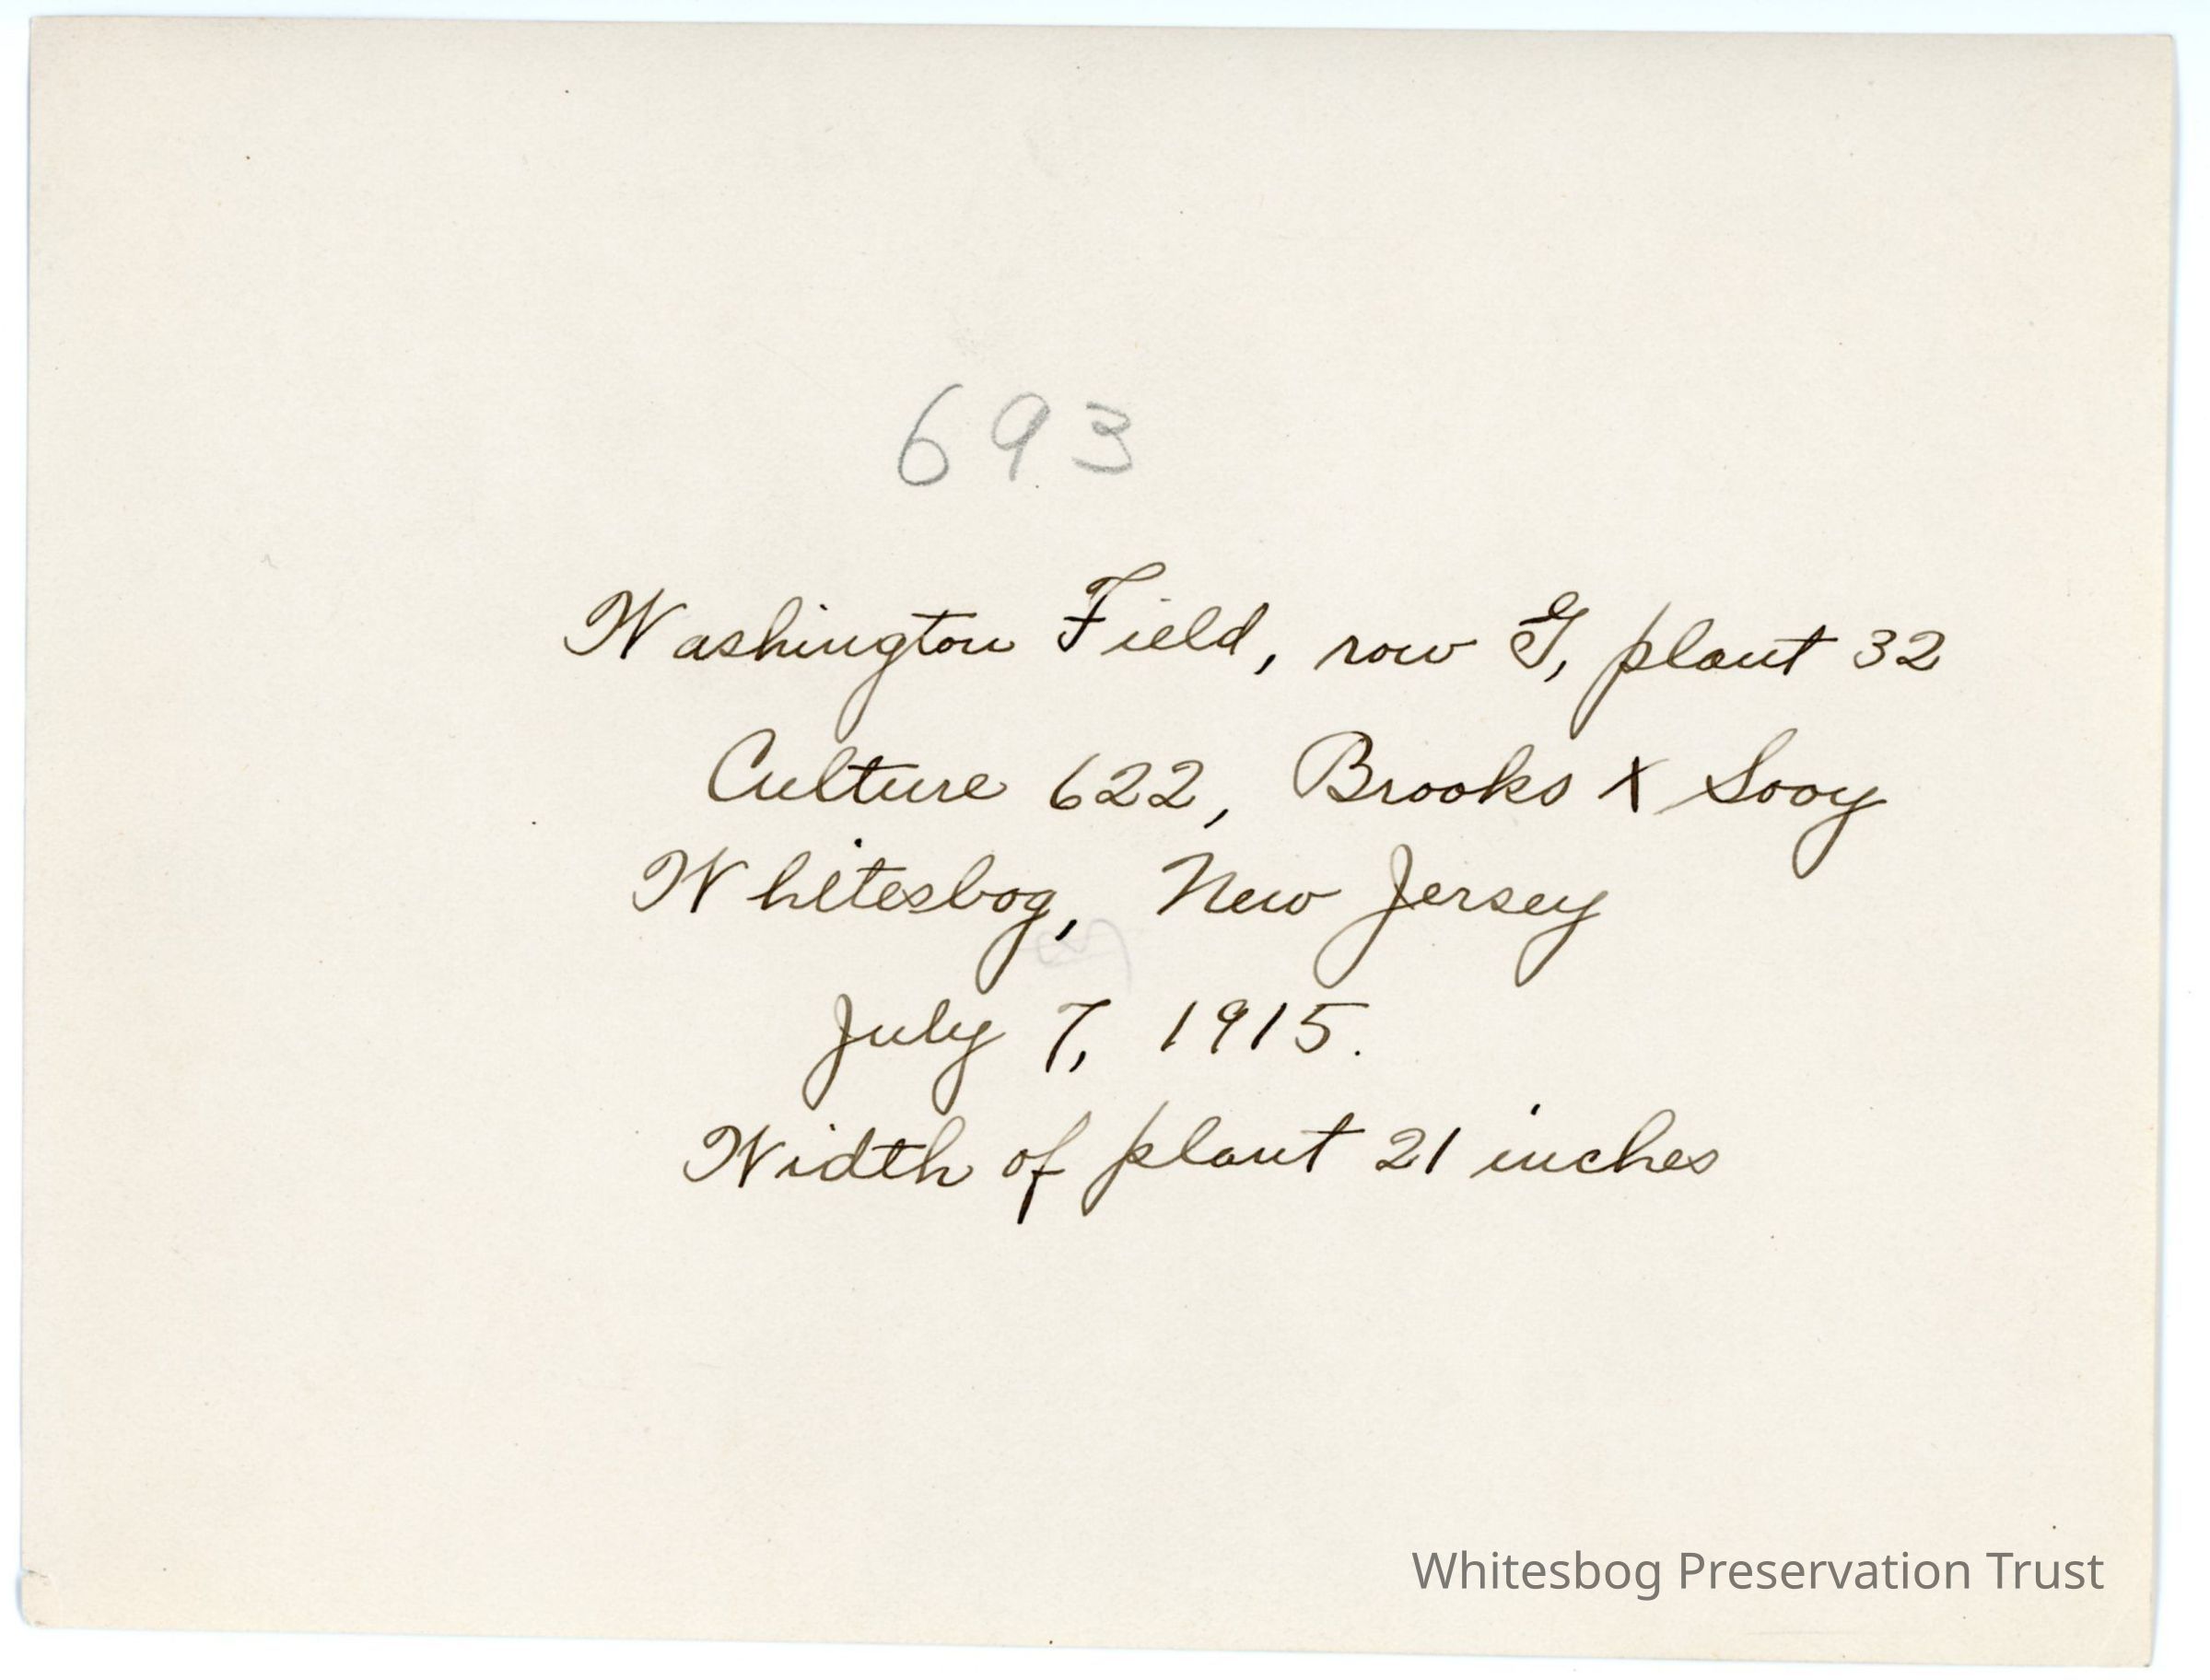 693
Washington Field, row G, plant 32
Culture 622, Brooks X Sooy
Whitesbog, New Jersey
July 7, 1915.
Width of plant 21 inches
Whitesbog Preservation Trust